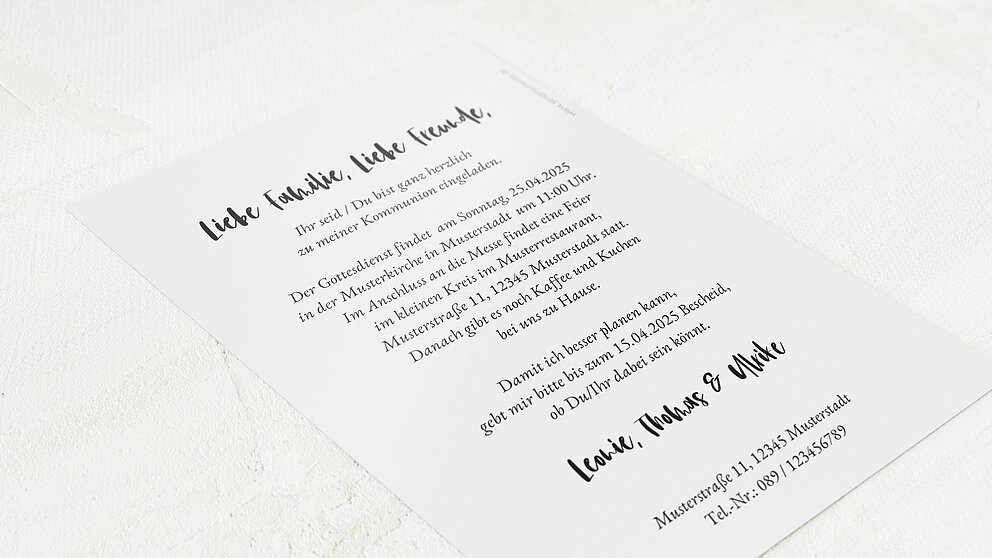 Liebe Familie, Liebe Freunde,
Ihr seid / Du bist ganz herzlich
zu meiner Kommunion eingeladen.
Der Gottesdienst findet am Sonntag, 25.04.2025
in der Musterkirche in Musterstadt um 11:00 Uhr.
Im Anschluss an die Messe findet eine Feier
im kleinen Kreis im Musterrestaurant,
Musterstraße 11, 12345 Musterstadt statt.
Danach gibt es noch Kaffee und Kuchen
bei uns zu Hause.
Damit ich besser planen kann,
gebt mir bitte bis zum 15.04.2025 Bescheid,
ob Du/Ihr dabei sein könnt.
Leonie, Thomas & Ulrike
Musterstraße 11, 12345 Musterstadt
Tel.-Nr.: 089 / 123456789